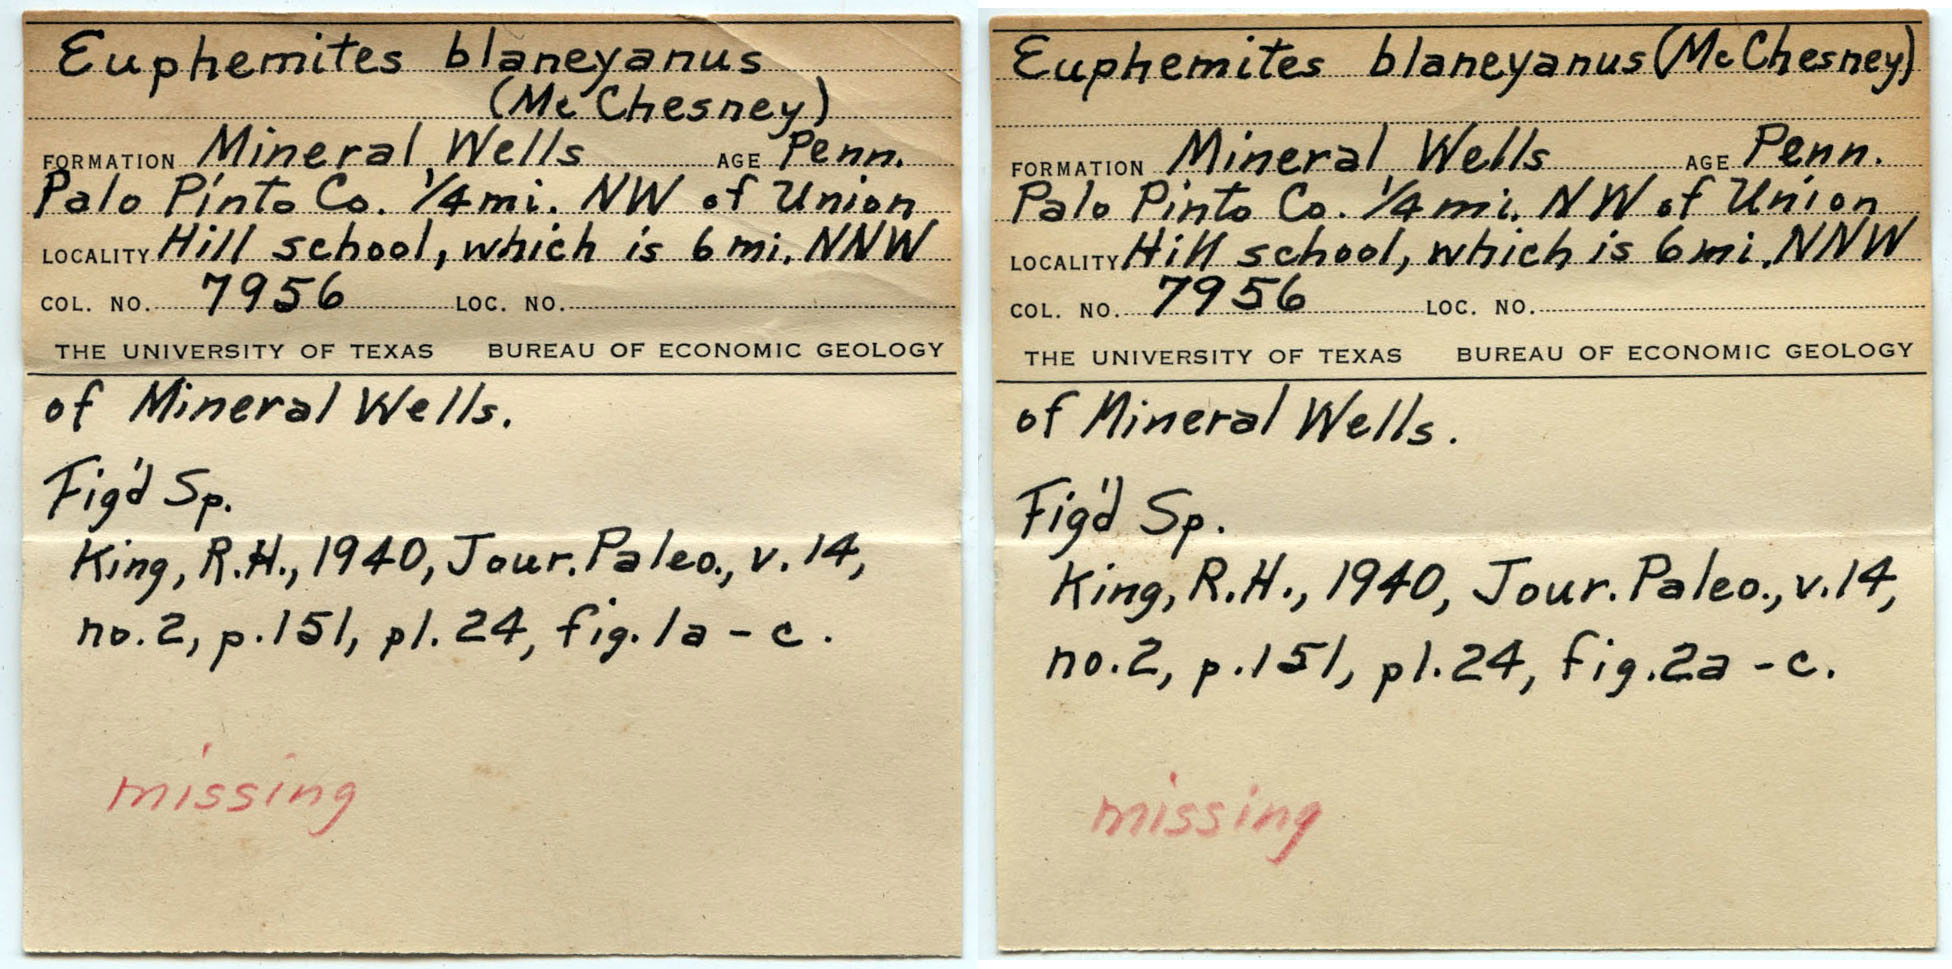 Euphemites blaneyanus
(McChesney)
FORMATION Mineral Wells AGE Penn.
Palo Pinto Co. 1/4 mi. NW of Union
LOCALITY Hill school, which is 6 mi. NNW
COL. NO. 7956 LOC. NO.
THE UNIVERSITY OF TEXAS BUREAU OF ECONOMIC GEOLOGY
of Mineral Wells.
Fig'd Sp.
King, R.H., 1940, Jour. Paleo., v. 14,
no. 2, p. 151, pl. 24, fig. 1a - c.
missing
Euphemites blaneyanus (McChesney)
FORMATION Mineral Wells AGE Penn.
Palo Pinto Co. 1/4 mi. NW of Union
LOCALITY Hill school, which is 6 mi. NNW
COL. NO. 7956 LOC. NO.
THE UNIVERSITY OF TEXAS BUREAU OF ECONOMIC GEOLOGY
of Mineral Wells.
Fig'd Sp.
King, R.H., 1940, Jour. Paleo., v. 14,
no. 2, p. 151, pl. 24, fig. 2a - c.
missing